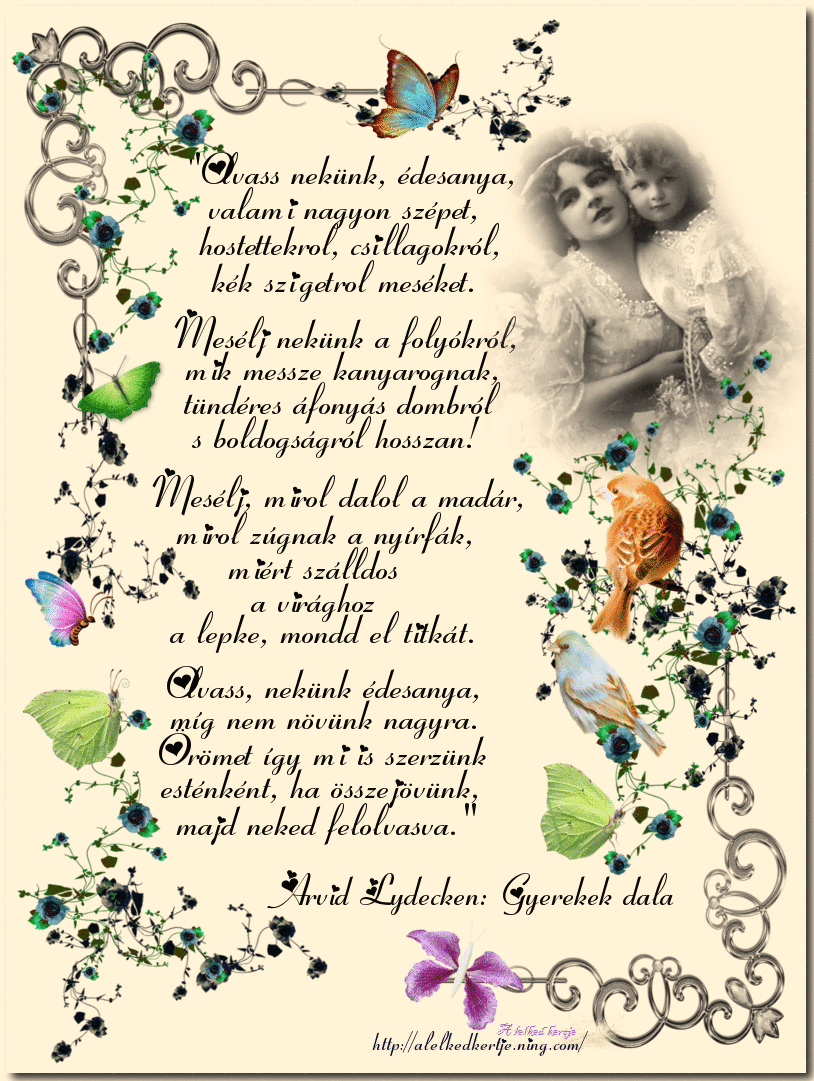 "Olvass nekünk, édesanya,
valami nagyon szépet,
hostettekrol, csillagokról,
kék szigetrol meséket.
Mesélj nekünk a folyókról,
mik messze kanyarognak,
tündéres áfonyás dombról
s boldogságról hosszan!
Mesélj, mirol dalol a madár,
mirol zúgnak a nyírfák,
miért szálldos
a virághoz
a lepke, mondd el titkát.
Olvass, nekünk édesanya,
míg nem növünk nagyra.
Örömet így mi is szerzünk
esténként, ha összejövünk,
majd neked felolvasva."
Arvid Lydecken: Gyerekek dala
A lelked kertje
http://alelkedkertje.ning.com/